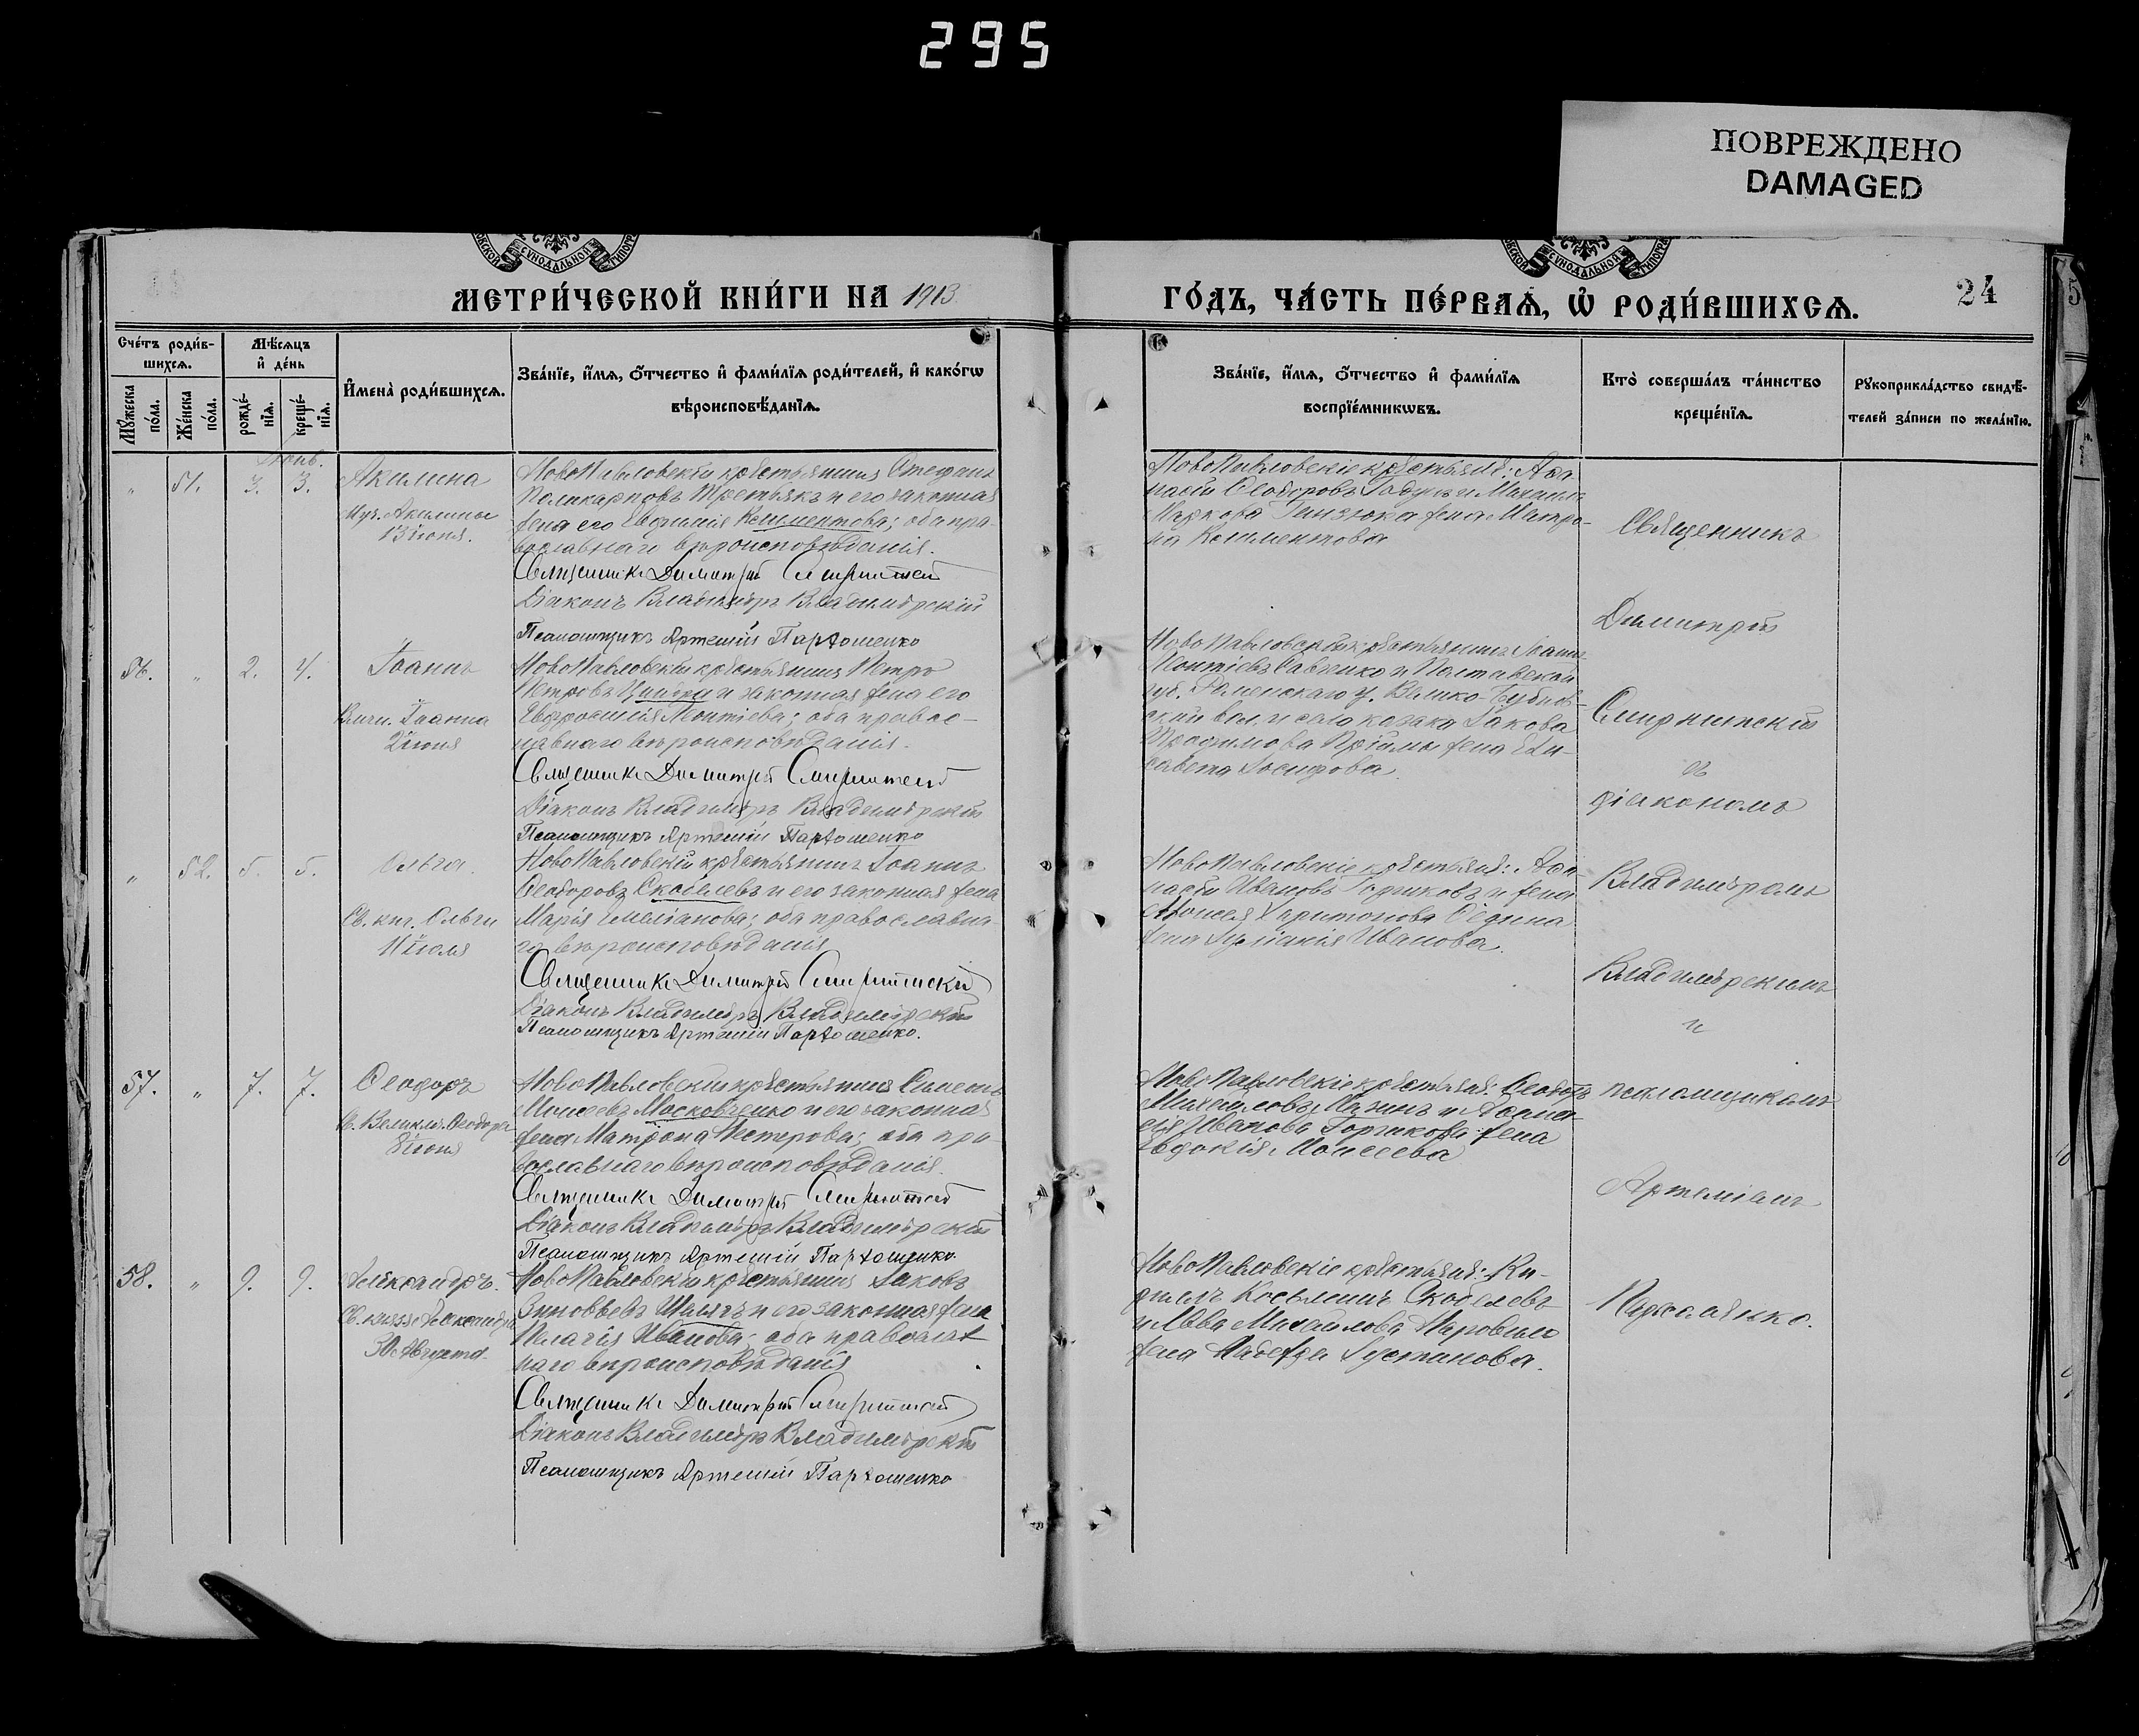 295
ПОВРЕЖДЕНО
DAMAGED
СѴНОДАЛЬНОЙ
СѴНОДАЛЬНОЙ
МЕТРИ́ЧЕСКОЙ КНИ́ГИ НА 1913
ГО́ДЪ, ЧА́СТЬ ПЕ́РВАѦ, Ѡ҆ РОДИ́ВШИХСѦ.
24
Сче́тъ роди́в-
шихсѧ.
Мѣ́сѧцъ
и҆ де́нь
Мꙋ́жеска по́ла.
Же́нска по́ла.
рожде́-нїѧ.
креще́-нїѧ.
И҆мена̀ роди́вшихсѧ.
Зва́нїе, и҆́мѧ, ѻ҆́тчество и҆ фами́лїѧ роди́телей, и҆ како́гѡ
вѣроисповѣ́данїѧ.
Зва́нїе, и҆́мѧ, ѻ҆́тчество и҆ фами́лїѧ
воспрїе́мникѡвъ.
Кто̀ соверша́лъ та́инство
креще́нїѧ.
Рꙋкоприкла́дство свидѣ́-
телей за́писи по жела́нїю.
Іюнь.
„ 51. 3. 3. Акилина
Муч. Акилины
13 Іюня.
НовоПавловскій крестьянинъ Стефанъ
Поликарповъ Третьякъ и его законная
жена его Евфимія Климентова; оба пра-
вославнаго вѣроисповѣданія.
Священникъ Димитрій Смирнитскій
Діаконъ Владиміръ Владимірскій
Псаломщикъ Артемій Пархоменко
НовоПавловскіе крестьяне: Аѳа-
насій Ѳеодоровъ и Михаила
Маркова жена Матро-
на Климентова
56. „ 2. 4. Іоаннъ
Вмч. Іоанна
2 Іюня
НовоПавловскій крестьянинъ Петръ
Петровъ и законная жена его
Евфросинія Леонтіева; оба правос-
лавнаго вѣроисповѣданія.
Священникъ Димитрій Смирнитскій
Діаконъ Владиміръ Владимірскій
Псаломщикъ Артемій Пархоменко
НовоПавловскій крестьянинъ Іоаннъ
Леонтіевъ Савченко и Полтавской
губ. Роменскаго у. Велико-Бубнов-
ской вол. и села козака Іакова
Трофимова Пріймы жена Ели-
савета Іосифова.
„ 52. 5. 5. Ольга.
Св. кн. Ольги
11 Іюля
НовоПавловскій крестьянинъ Іоаннъ
Ѳеодоровъ Скобелевъ и его законная жена
Марія Емеліанова; оба православна-
го вѣроисповѣданія
Священникъ Димитрій Смирнитскій
Діаконъ Владиміръ Владимірскій
Псаломщикъ Артемій Пархоменко.
НовоПавловскіе крестьяне: Аѳа-
насій Ивановъ Горчаковъ и жена
Моисея Харитонова
жена Іуліанія Иванова.
57. „ 7. 7. Ѳеодоръ
Св. Великом. Ѳеодора
8 Іюня
НовоПавловскій крестьянинъ Симеонъ
Моисеевъ Московченко и его законная
жена Матрона Нестерова; оба пра-
вославнаго вѣроисповѣданія.
Священникъ Димитрій Смирнитскій
Діаконъ Владиміръ Владимірскій
Псаломщикъ Артемій Пархоменко.
НовоПавловскіе крестьяне: Ѳеодоръ
Михайловъ и Аѳана-
сія Иванова Горчакова жена
Евдокія Моисеева
58. „ 9. 9. Александръ.
Св. князя Александра
30 Августа
НовоПавловскій крестьянинъ Іаковъ
Зиновьевъ и его законная жена
Пелагія Иванова; оба православ-
наго вѣроисповѣданія
Священникъ Димитрій Смирнитскій
Діаконъ Владиміръ Владимірскій
Псаломщикъ Артемій Пархоменко
НовоПавловскіе крестьяне: Ки-
риллъ Космичъ Скобелевъ
и Льва Михайлова
жена Надежда Іустинова.
Священникъ
Димитрій
Смирнитскій
съ
діакономъ
Владиміромъ
Владимірскимъ
и
псаломщикомъ
Артеміемъ
Пархоменко.